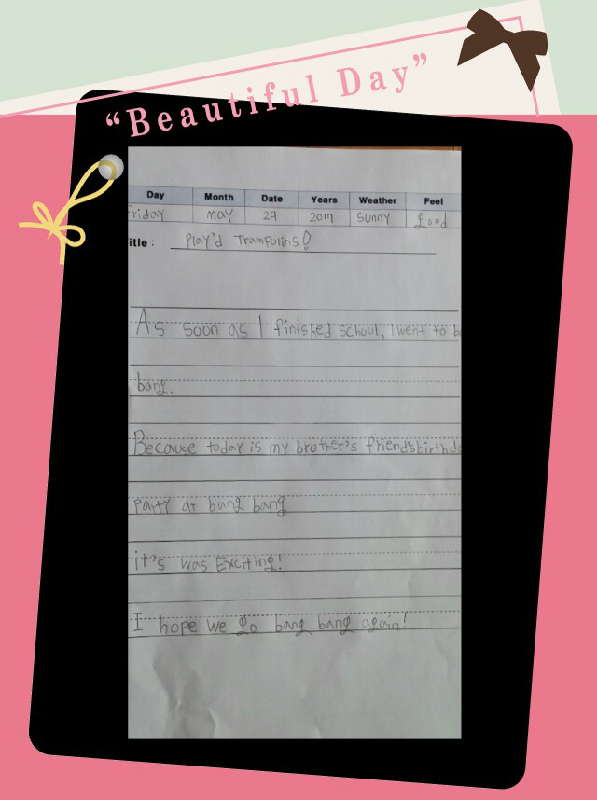 “Beautiful Day”
Day Month Date Years Weather Feel
Friday may 27 2011 Sunny good
itle : Play'd Trampolins!
As soon as I finished school, I went to b
bang.
Because today is my brother's friends birthda
party at bang bang
it's was Exciting!
I hope we go bang bang again!